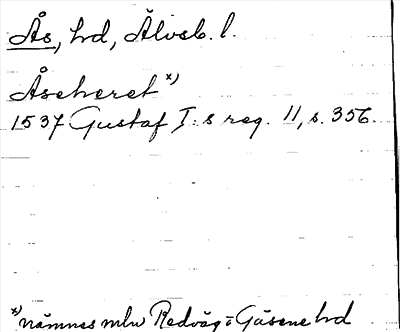 Ås, hd, Älvsb. l.
Åseheret *)
1537 Gustaf I:s reg. 11, s. 356.
*) nämnes mln Redväg- o Gäsene hd